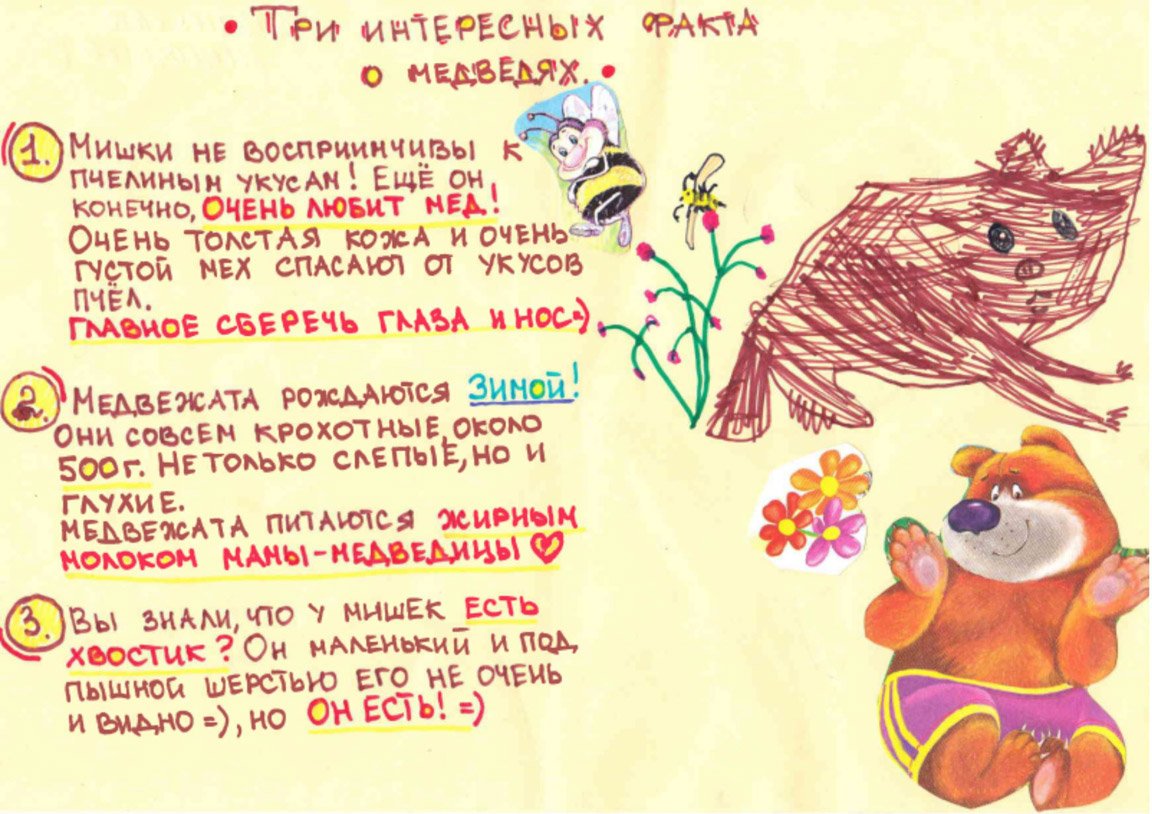 • Три интересных факта
о медведях. •
1. Мишки не восприимчивы к
пчелиным укусам! Ещё он,
конечно, ОЧЕНЬ ЛЮБИТ МЕД!
Очень толстая кожа и очень
густой мех спасают от укусов
пчёл.
ГЛАВНОЕ СБЕРЕЧЬ ГЛАЗА И НОС=)
2. Медвежата рождаются Зимой!
Они совсем крохотные, около
500 г. Не только слепые, но и
глухие.
Медвежата питаются жирным
молоком мамы-медведицы ♡
3. Вы знали, что у мишек ЕСТЬ
ХВОСТИК? Он маленький и под
пышной шерстью его не очень
и видно =), но ОН ЕСТЬ! =)